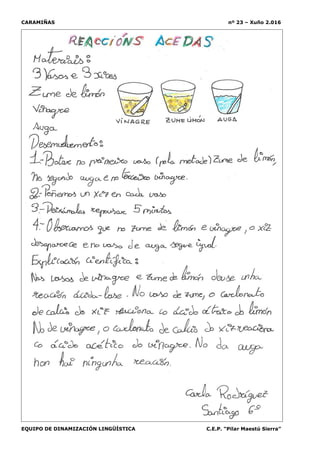 CARAMIÑAS nº 23 – Xuño 2.016
REACCIÓNS ACEDAS
Materiais:
3 Vasos e 3 xices
Zume de limón
Vinagre
Auga
VINAGRE ZUME LIMÓN AUGA
Desenvolvemento:
1-Botar no primeiro vaso (pola metade) Zume de limón,
no segundo auga e no terceiro vinagre.
2-Poñemos un xiz en cada vaso
3-Deixámolos repousar 5 minutos
4-Observamos que no zume de limón e vinagre, o xiz
desaparece e no vaso de auga segue igual.
Explicación científica:
Nos vasos de vinagre e zume de limón dáse unha
reacción ácida-base. No vaso de zume, o carbonato
de calcio do xiz reacciona co ácido cítrico do limón
No de vinagre, o carbonato de calcio do xiz reacciona
co ácido acético do vinagre. No da auga
non hai ningunha reacción.
Carla Rodríguez
Santiago 6º
EQUIPO DE DINAMIZACIÓN LINGÜÍSTICA C.E.P. "Pilar Maestú Sierra"